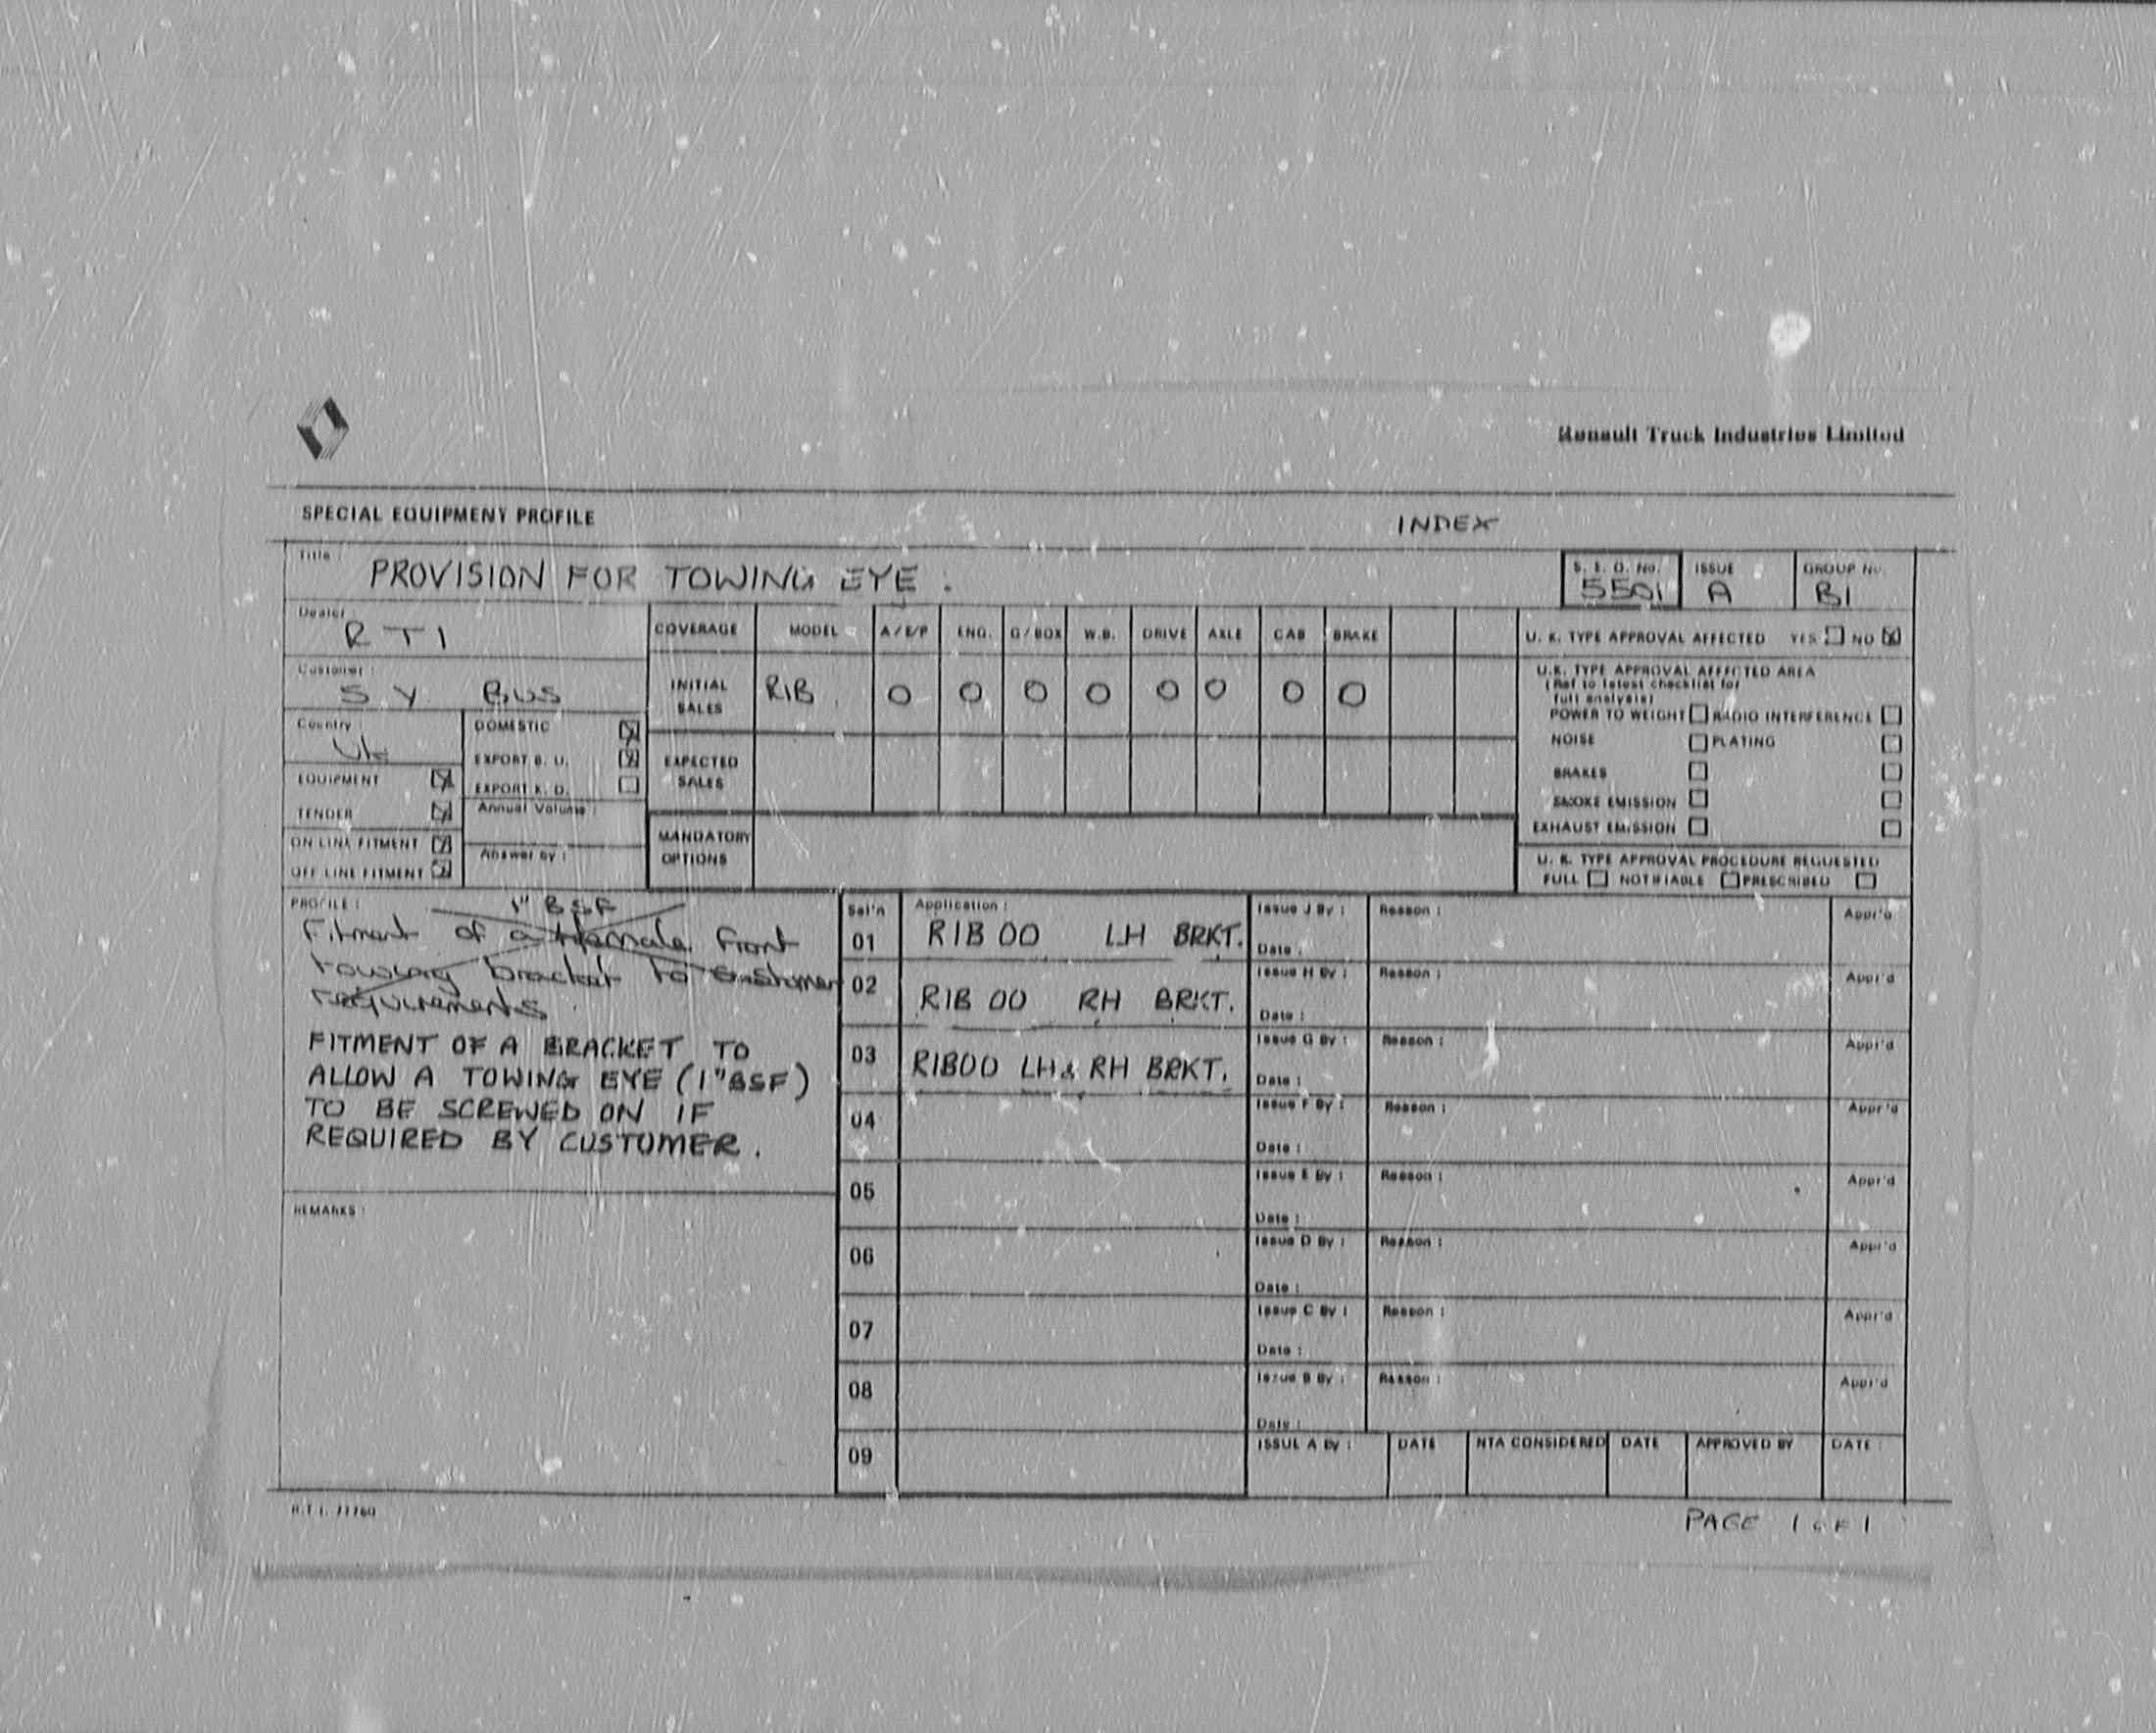 Renault Truck Industries Limited
SPECIAL EQUIPMENT PROFILE INDEX
Title : PROVISION FOR TOWING EYE .
S. E. O. No. 5501 ISSUE A GROUP No. B1
Dealer : RTI
Customer : S Y BUS
Country : UK
DOMESTIC
EXPORT B. U.
EXPORT K. D.
EQUIPMENT
TENDER
ON LINE FITMENT
OFF LINE FITMENT
Annual Volume :
Answer by :
COVERAGE MODEL A/E/P ENG. G/BOX W.B. DRIVE AXLE CAB BRAKE
INITIAL SALES R1B 0 0 0 0 0 0 0 0
EXPECTED SALES
MANDATORY OPTIONS
U. K. TYPE APPROVAL AFFECTED YES NO
U.K. TYPE APPROVAL AFFECTED AREA
(Ref to latest checklist for
full analysis)
POWER TO WEIGHT RADIO INTERFERENCE
NOISE PLATING
BRAKES
SMOKE EMISSION
EXHAUST EMISSION
U. K. TYPE APPROVAL PROCEDURE REQUESTED
FULL NOTIFIABLE PRESCRIBED
PROFILE :
1" BSF
Fitment of a female front
towing bracket to customer
requirements
FITMENT OF A BRACKET TO
ALLOW A TOWING EYE (1"BSF)
TO BE SCREWED ON IF
REQUIRED BY CUSTOMER .
REMARKS :
Sel'n Application :
01 R1B 00 LH BRKT.
02 R1B 00 RH BRKT.
03 R1B00 LH & RH BRKT.
04
05
06
07
08
09
Issue J By : Reason : Appr'd
Date :
Issue H By : Reason : Appr'd
Date :
Issue G By : Reason : Appr'd
Date :
Issue F By : Reason : Appr'd
Date :
Issue E By : Reason : Appr'd
Date :
Issue D By : Reason : Appr'd
Date :
Issue C By : Reason : Appr'd
Date :
Issue B By : Reason : Appr'd
Date :
ISSUE A By : DATE NTA CONSIDERED DATE APPROVED BY DATE :
R.T.I. 77760
PAGE 1 OF 1